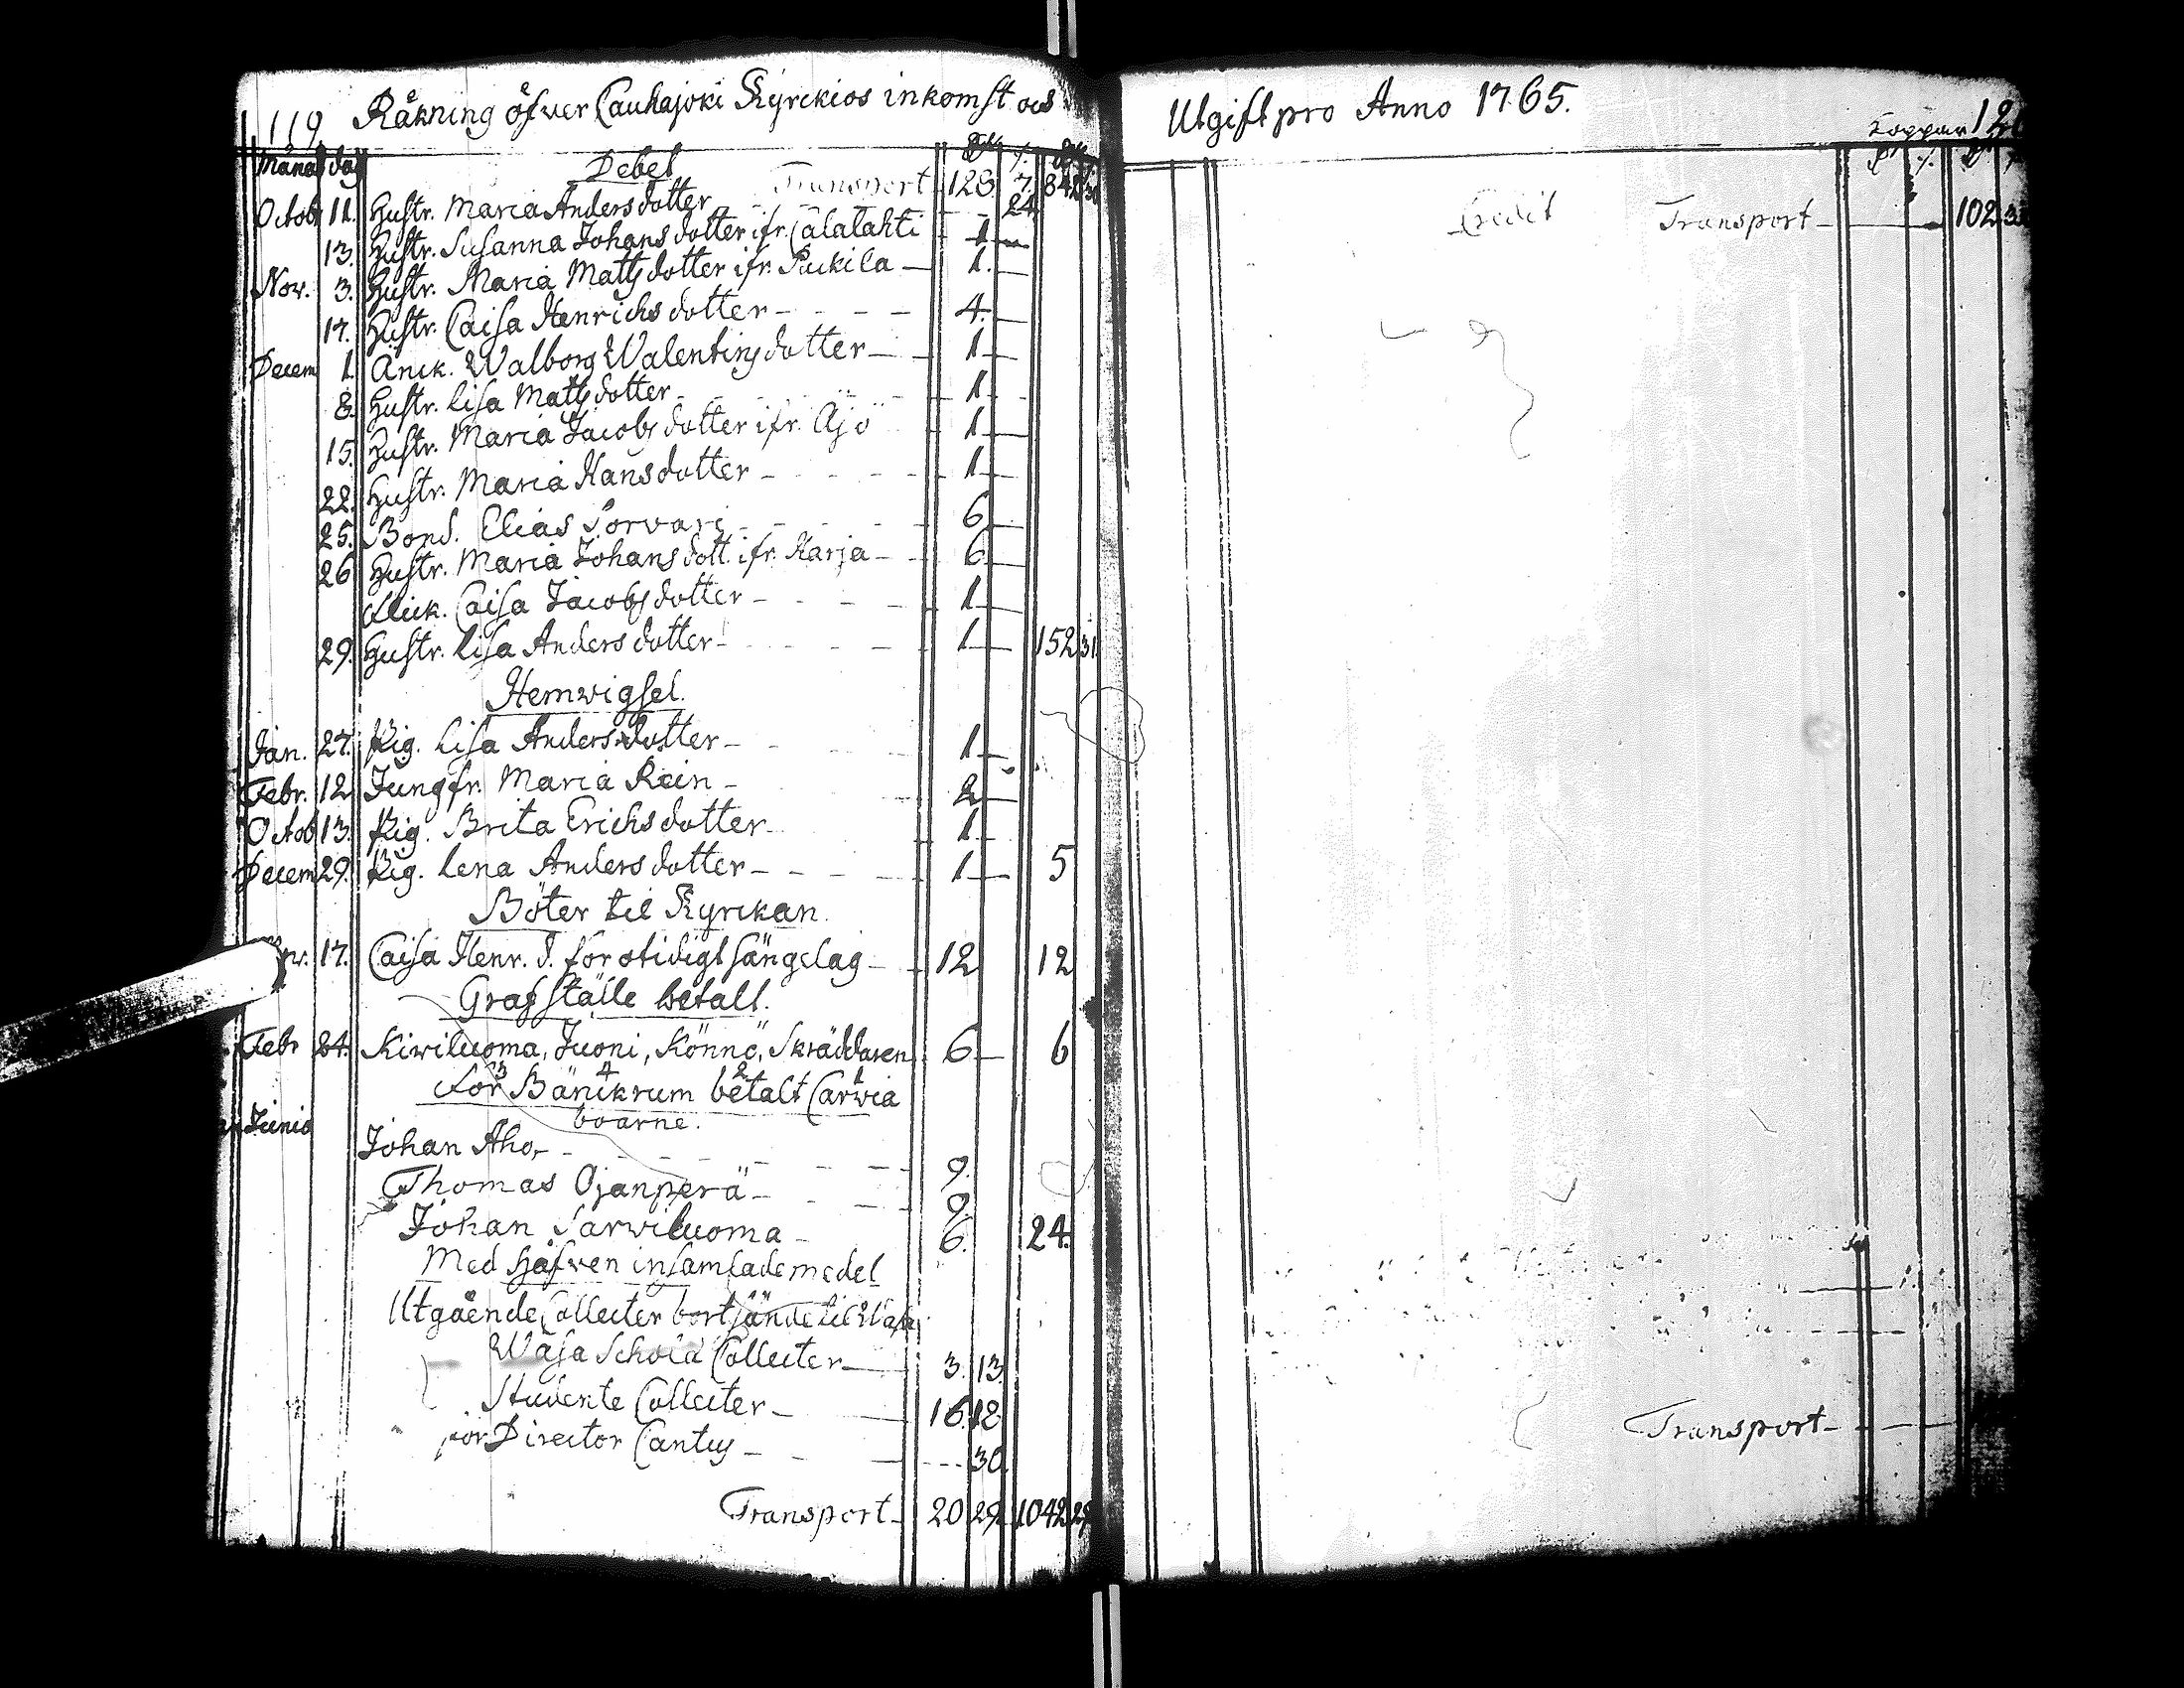 119 Räkning öfwer Cauhajoki Kyrckios inkomst och
Måna dag Debet
Transport 128 7. 842 31
Octob 11. Hustr. Maria Andersdotter - 24
13. Hustr. Susanna Johansdotter ifr. Calalahti - 1 -
Nov. 3. Hustr. Maria Mattsdotter ifr. Puckila - 1. -
17. Hustr. Caisa Henrichsdotter - - - - 4. -
Decem 1. Änck. Walborg Walentinsdotter - 1 -
8. Hustr. Lisa Mattsdotter - 1 -
15. Hustr. Maria Jacobsdotter ifr. Äjö - 1 -
22. Hustr. Maria Hansdotter - - - - 1 -
25. Bond. Elias Sorvari - - - - 6 -
26 Hustr. Maria Johansdott. ifr. Harja - 6 -
Flick. Caisa Jacobsdotter - - - - 1 -
29. Hustr. Lisa Andersdotter - - - - 1 - 152 31.
Hemwigsel.
Jan. 27. Pig. Lisa Andersdotter - 1 -
Febr. 12 Jungfr. Maria Rein - 2 -
Octob 13. Pig. Brita Erichsdotter - 1 -
Decem 29. Pig. Lena Andersdotter - - - 1 - 5
Böter til Kyrckan.
17. Caisa Henr. d. för otidigt sängelag - 12 12
Grafställe betalt.
Febr 24. Kiwiluoma, Juoni, Könnö, Skräddaren 6 - 6
3 4 2 1
För Bänckrum betalt Carwia
boarne.
Junio
Johan Aho, - - - - 9.
Thomas Ojanperä - - - 9.
Johan Sarwiluoma - 6. 24.
Med Håfwen insamlade medel
Utgående Collecter bortsände til Wasa
Wasa Schola Collecter - 3. 13.
Studente Collecter - 16. 18
för Director Cantus - - - - 30.
Transport - 20 29. 1042 29
Utgift pro Anno 1765.
Koppar 12
Credit Transport - 102 3
Transport -